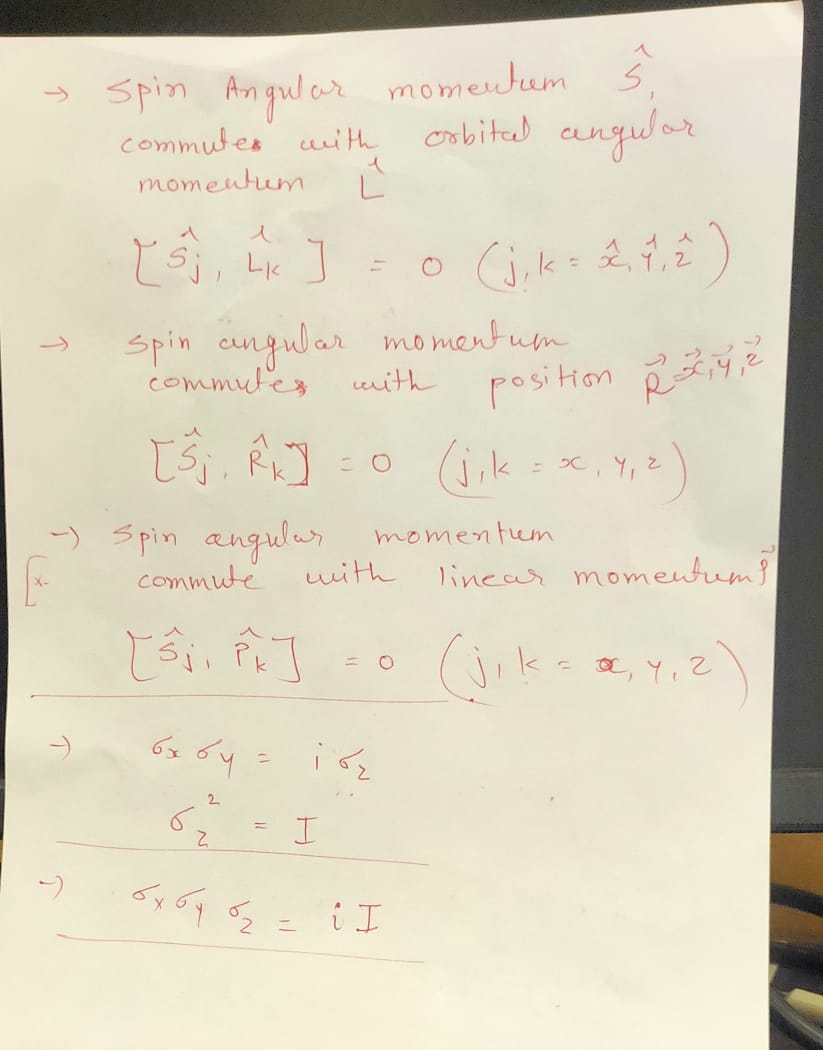 → Spin Angular momentum Ŝ,
commutes with orbital angular
momentum L̂
[Ŝj, L̂k] = 0 (j,k = x̂, ŷ, ẑ)
→ spin angular momentum
commutes with position R⃗ = x⃗, y⃗, z⃗
[Ŝj, R̂k] = 0 (j,k = x, y, z)
→ Spin angular momentum
[x- commute with linear momentum P⃗
[Ŝj, P̂k] = 0 (j,k = x, y, z)
→ σx σy = i σz
σz² = I
→ σx σy σz = i I